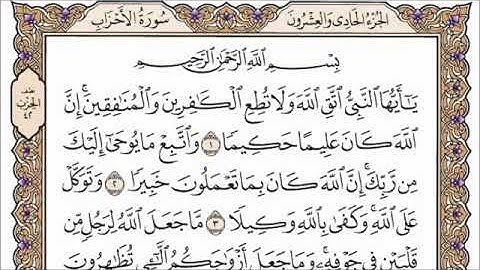 الجزء الحادي والعشرون
سورة الأحزاب
بِسْمِ اللَّهِ الرَّحْمَٰنِ الرَّحِيمِ
يَٰٓأَيُّهَا النَّبِيُّ اتَّقِ اللَّهَ وَلَا تُطِعِ الْكَٰفِرِينَ وَالْمُنَٰفِقِينَ ۗ إِنَّ
اللَّهَ كَانَ عَلِيمًا حَكِيمًا ١ وَاتَّبِعْ مَا يُوحَىٰٓ إِلَيْكَ
مِن رَّبِّكَ ۚ إِنَّ اللَّهَ كَانَ بِمَا تَعْمَلُونَ خَبِيرًا ٢ وَتَوَكَّلْ
عَلَى اللَّهِ ۚ وَكَفَىٰ بِاللَّهِ وَكِيلًا ٣ مَّا جَعَلَ اللَّهُ لِرَجُلٍ مِّن
قَلْبَيْنِ فِي جَوْفِهِ ۚ وَمَا جَعَلَ أَزْوَٰجَكُمُ الَّٰٓـِٔي تُظَٰهِرُونَ
الحزب
٤٢